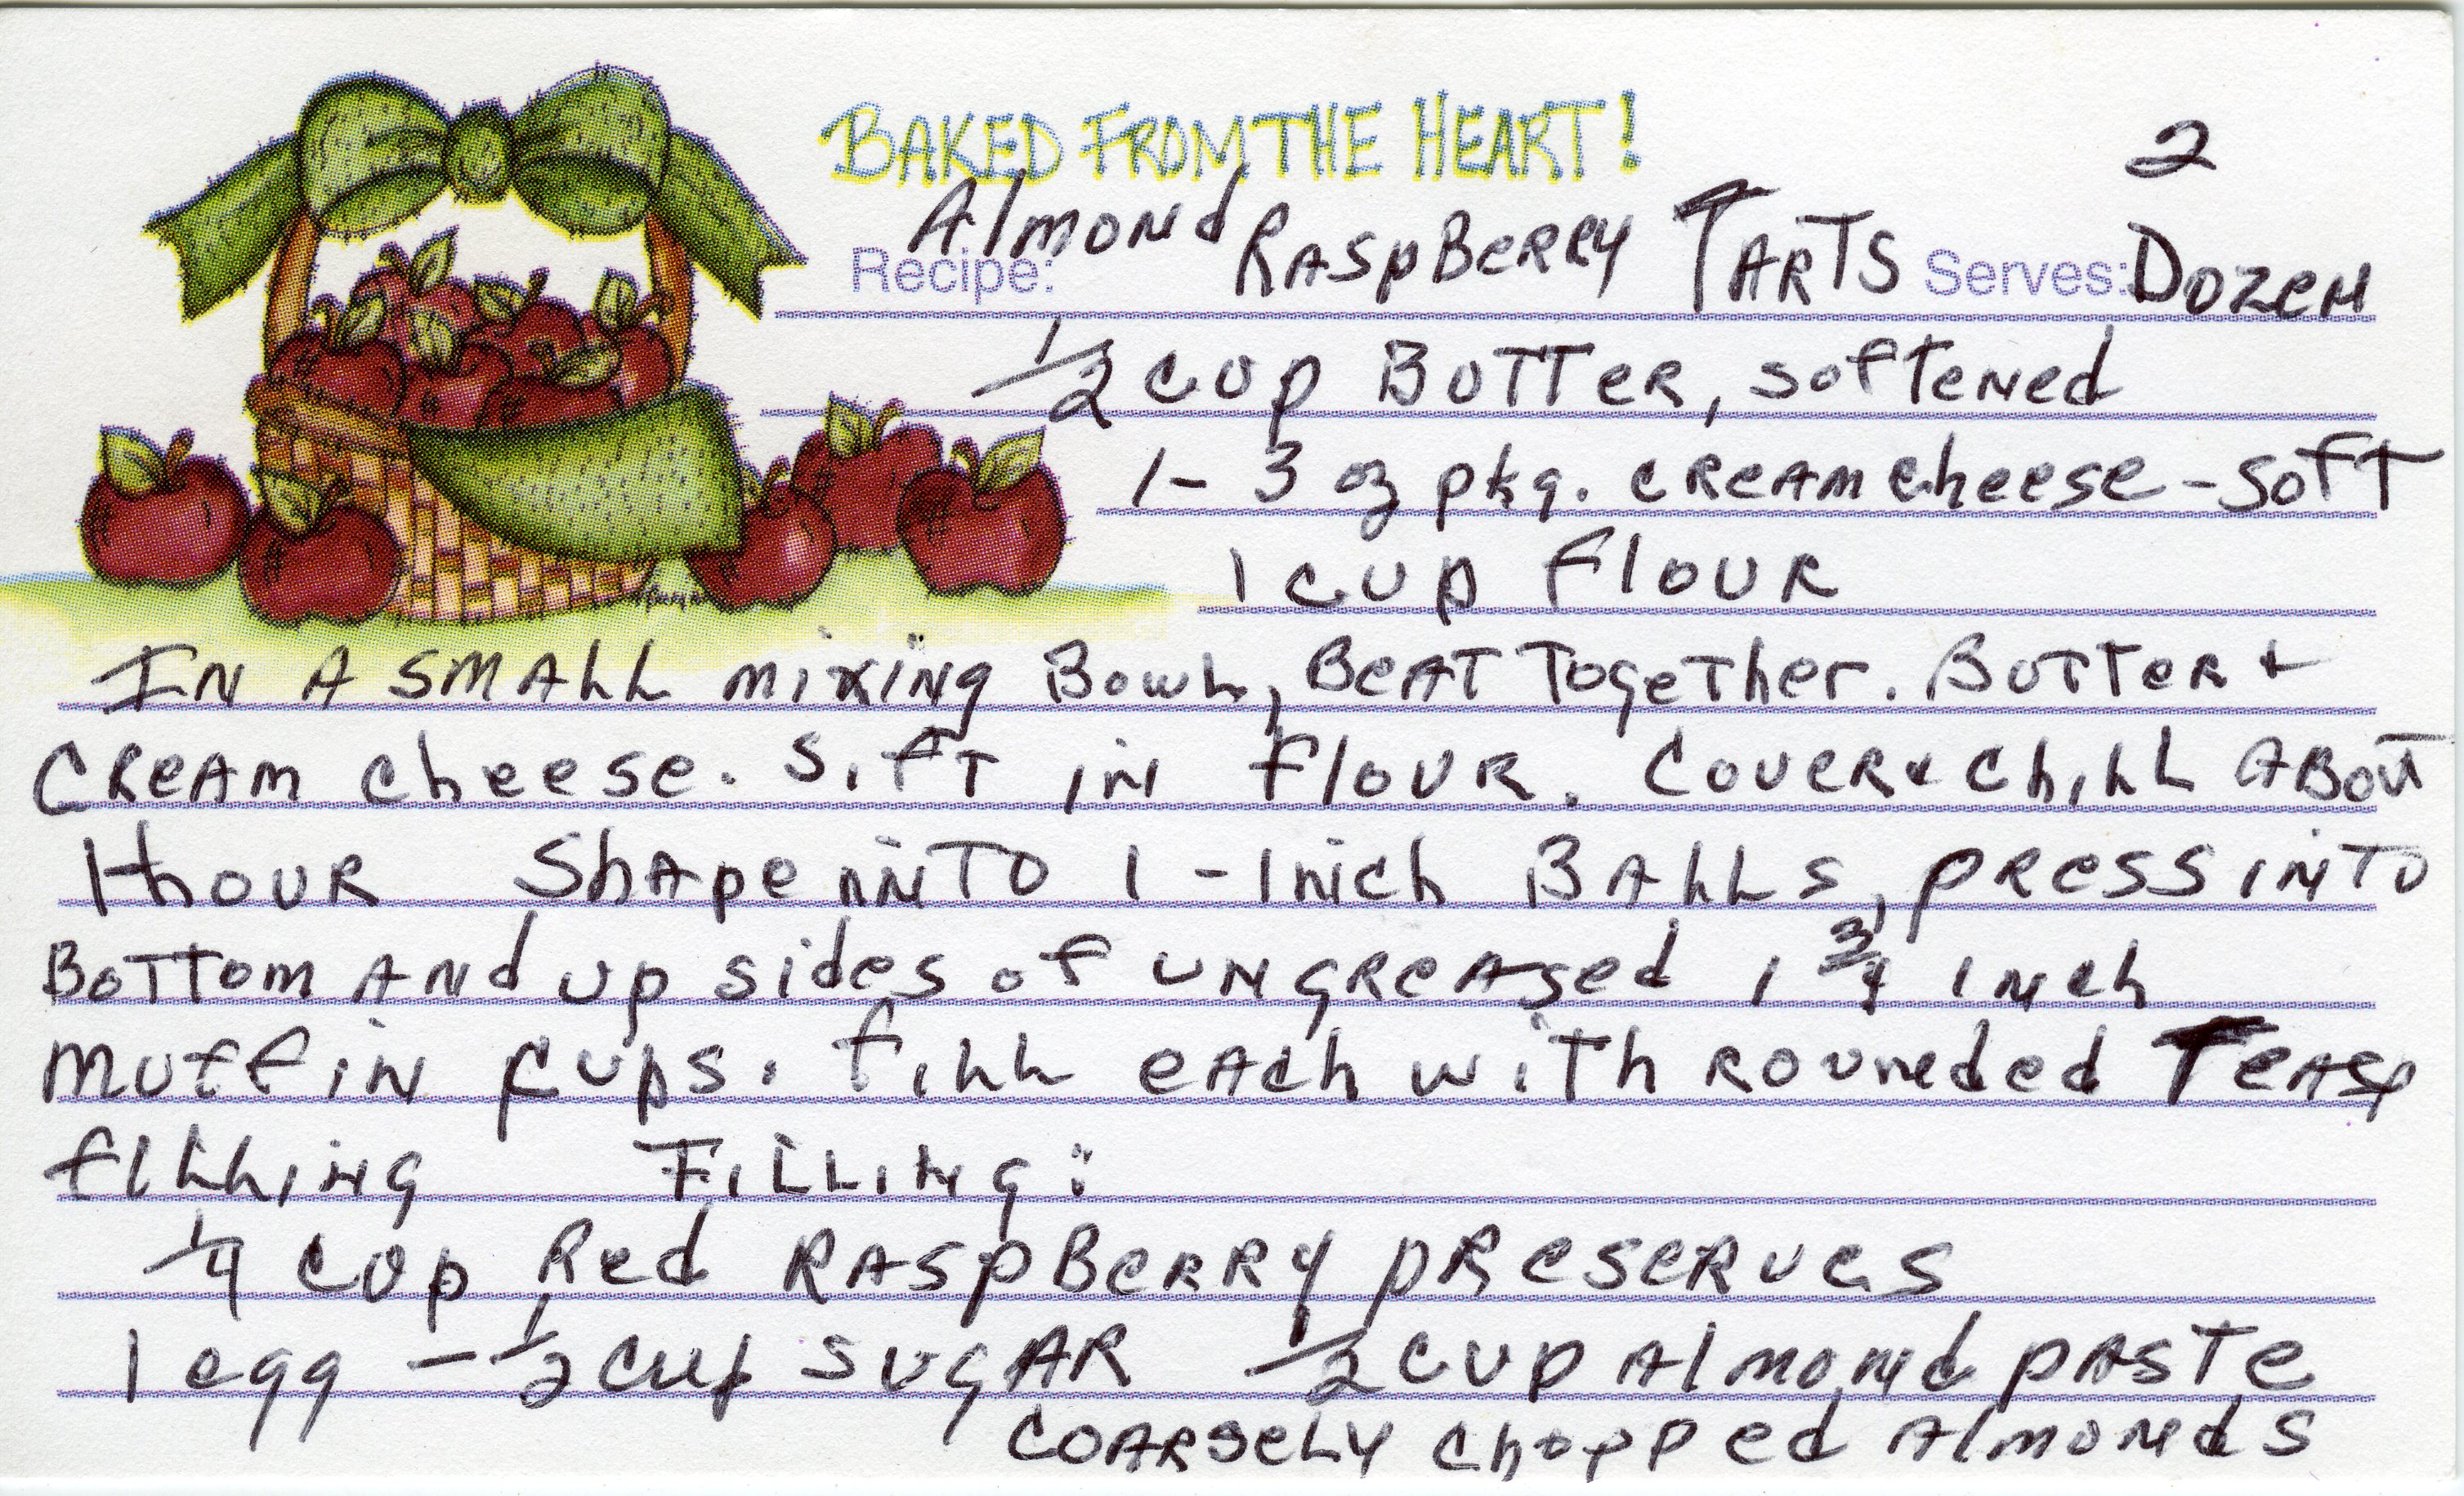 BAKED FROM THE HEART!
Recipe: Almond Raspberry Tarts Serves: 2 Dozen
1/2 cup Butter, softened
1- 3 oz pkg. cream cheese - soft
1 cup flour
In a small mixing Bowl, Beat Together. Butter &
Cream cheese. Sift in flour. Cover & chill About
1 hour Shape ninto 1-Inich Balls, press into
Bottom and up sides of ungreased 1 3/4 inch
muffin cups. fill each with rounded Teasp
filling Filling:
1/4 cup Red Raspberry preserves
1 egg - 1/2 cup sugar 1/2 cup Almond paste
coarsely chopped Almonds